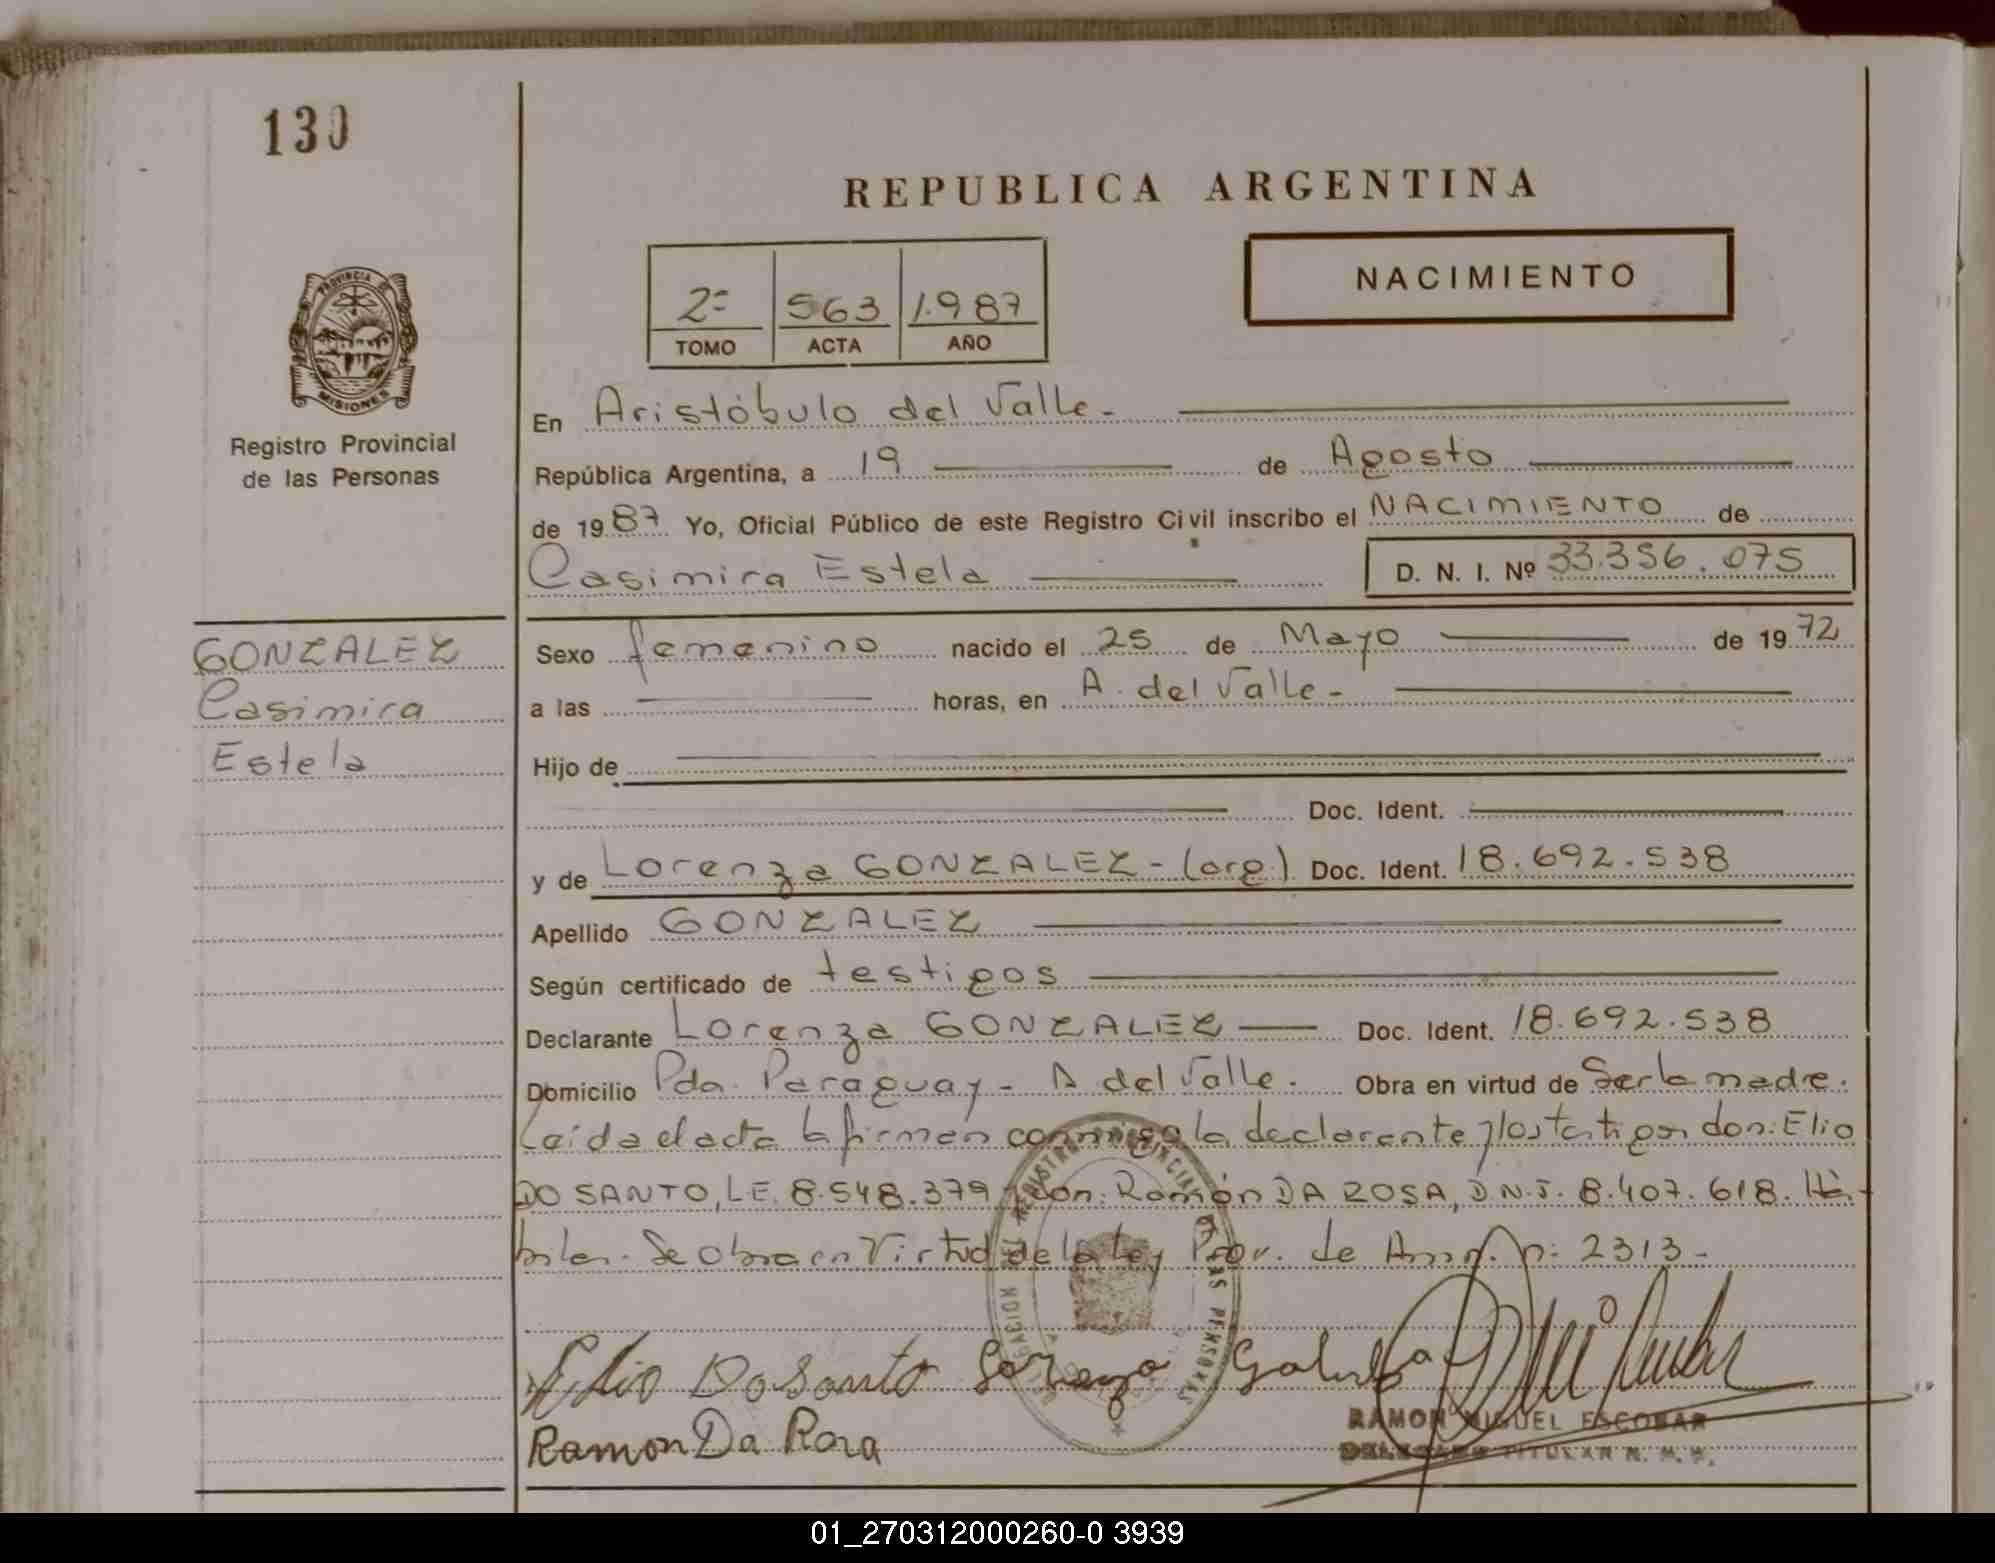 130
REPUBLICA ARGENTINA
NACIMIENTO
2º 563 1.987
TOMO ACTA AÑO
PROVINCIA DE
MISIONES
Registro Provincial
de las Personas
En Aristóbulo del Valle.-
República Argentina, a 19 de Agosto
de 1987 Yo, Oficial Público de este Registro Civil inscribo el NACIMIENTO de
Casimira Estela D. N. I. Nº 33.356.075
GONZALEZ
Casimira
Estela
Sexo femenino nacido el 25 de Mayo de 1972
a las horas, en A. del Valle-
Hijo de
Doc. Ident.
y de Lorenza GONZALEZ-(arg.) Doc. Ident. 18.692.538
Apellido GONZALEZ
Según certificado de testigos
Declarante Lorenza GONZALEZ Doc. Ident. 18.692.538
Domicilio Pda. Paraguay- A del Valle. Obra en virtud de Ser la madre.
Leída el acta la firman conmigo la declarante y los testigos don: Elio
DO SANTO, L.E. 8.548.379 y don: Ramón DA ROSA, D.N.I. 8.407.618. Há-
biles. Se obra en Virtud de la Ley Prov. de Amn. nº 2313-
Elio Do Santo Lorenza
Ramon Da Rosa
RAMON MIGUEL ESCOBAR
DELEGADO TITULAR
01_270312000260-0 3939